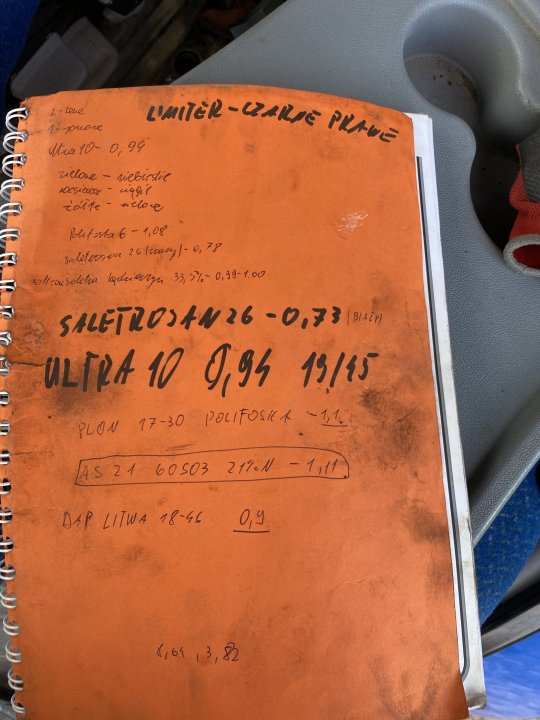 LIMITER-CZARNE PRAWE
Ultra 10 - 0,94
zielone - niebieskie
żółte - zielone
Polifoska 6 - 1,08
saletrosan 26 (szary) - 0,78
33,5% - 0,99-1.00
SALETROSAN 26 - 0,73 (BIAŁY)
ULTRA 10 0,94 19/45
PLON 17-30 POLIFOSKA - 1,1
AS 21 60S03 21%N - 1,11
DAP LITWA 18-46 0,9
6,64 , 3,82